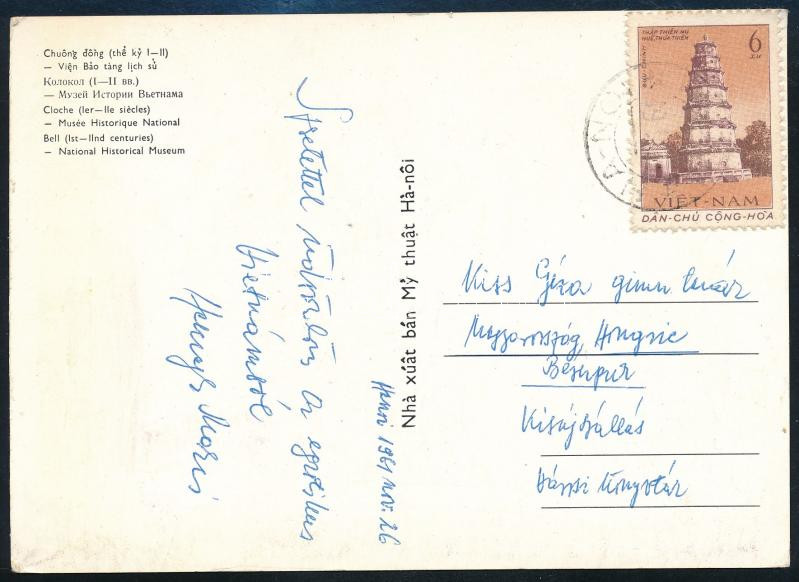 Chuông đồng (thế kỷ I—II)
— Viện Bảo tàng lịch sử
Колокол (I—II вв.)
— Музей Истории Вьетнама
Cloche (Ier—IIe siècles)
— Musée Historique National
Bell (Ist—IInd centuries)
— National Historical Museum
Szeretettel üdvözlöm az egzotikus
Vietnámból
Móric
Hanoi 1961 nov. 26
Nhà xuất bản Mỹ thuật Hà-nội
THÁP THIÊN MỤ
HUẾ, THỪA THIÊN
BƯU CHÍNH
6
XU
VIỆT-NAM
DÂN-CHỦ CỘNG-HÒA
HA-NOI
Kiss Géza gimn tanár
Magyarország Hongrie
Kisújszállás